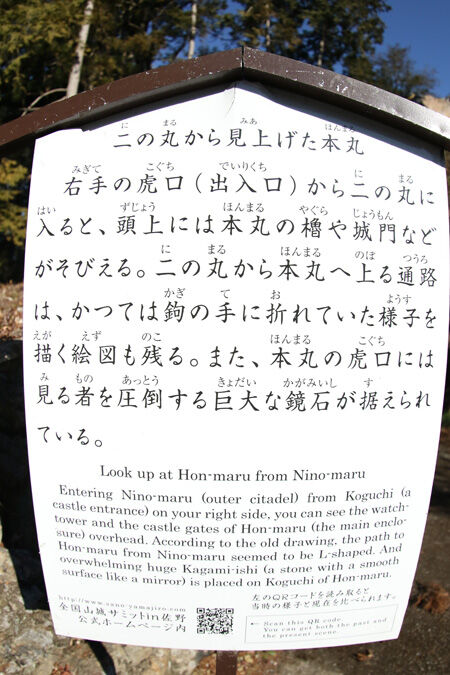 二の丸から見上げた本丸
右手の虎口(出入口)から二の丸に
入ると、頭上には本丸の櫓や城門など
がそびえる。二の丸から本丸へ上る通路
は、かつては鉤の手に折れていた様子を
描く絵図も残る。また、本丸の虎口には
見る者を圧倒する巨大な鏡石が据えられ
ている。
Look up at Hon-maru from Nino-maru
Entering Nino-maru (outer citadel) from Koguchi (a
castle entrance) on your right side, you can see the watch-
tower and the castle gates of Hon-maru (the main enclo-
sure) overhead. According to the old drawing, the path to
Hon-maru from Nino-maru seemed to be L-shaped. And
overwhelming huge Kagami-ishi (a stone with a smooth
surface like a mirror) is placed on Koguchi of Hon-maru.
http://www.sano-yamajiro.com
全国山城サミットin佐野
公式ホームページ内
左のQRコードを読み取ると
当時の様子と現在を比べられます。
← Scan this QR code.
You can get both the past and
the present scene.